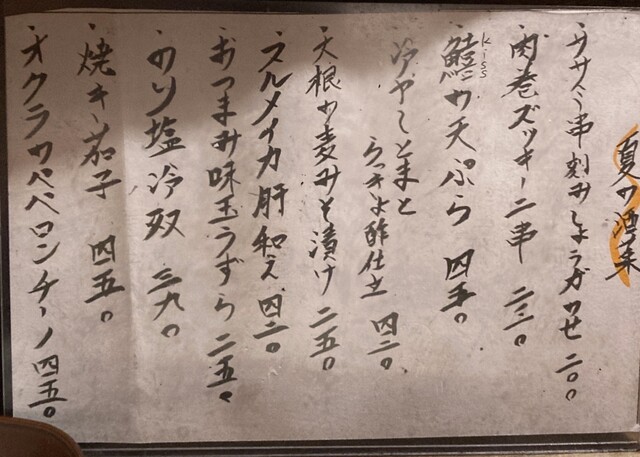 夏の酒菜
・ササミ串刻みしょうがのせ 二〇〇
・肉巻ズッキーニ串 二三〇
・鱚の天ぷら 四五〇
kiss
・冷や〜とまと
らっきょ酢仕立 四二〇
・大根の麦みそ漬け 二五〇
・スルメイカ肝和え 四二〇
・おつまみ味玉うずら 二五〇
・のり塩冷奴 三九〇
・焼き茄子 四五〇
・オクラのペペロンチーノ 四五〇